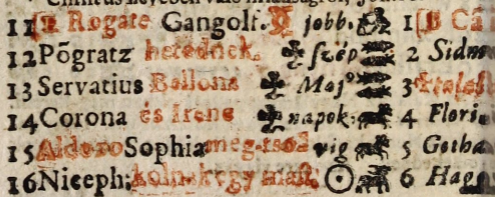 11 [B Rogate Gangolf. jobb. 1 [B
12 Põgratz hetednek. szép 2 Sidm
13 Servatius Bellona Maj° 3
14 Corona és Irene napok. 4 Flori
15 Aldozo Sophia meg-tsod vig 5 Gotha
16 Niceph. egy mást 6 Hag